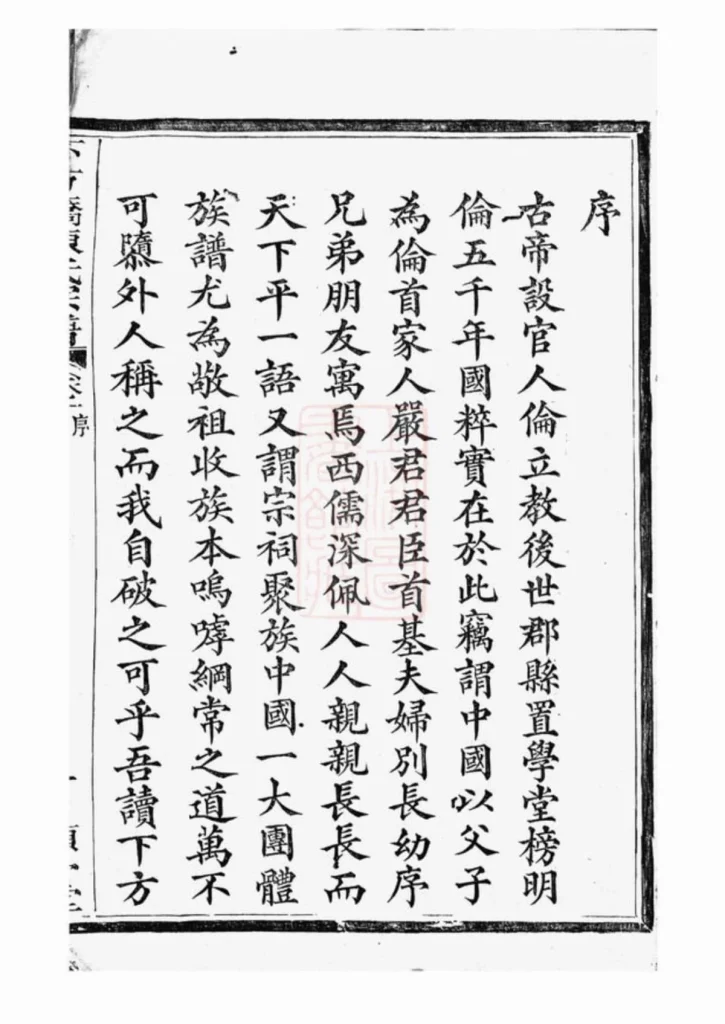 序
古帝設官人倫立教後世郡縣置學堂榜明
倫五千年國粹實在於此竊謂中國以父子
為倫首家人嚴君君臣首基夫婦別長幼序
兄弟朋友寓焉西儒深佩人人親親長長而
天下平一語又謂宗祠聚族中國一大團體
族譜尤為敬祖收族本嗚嘑綱常之道萬不
可隳外人稱之而我自破之可乎吾讀下方
序
一